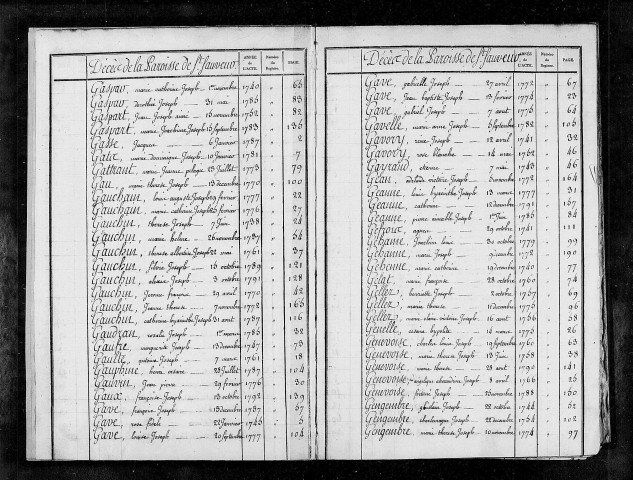 Décès de la Paroisse de St Sauveur
ANNÉE de L'ACTE. Numéro du Registre. PAGE.
Gaspar, marie catherine Joseph — 1er novembre 1740 " 66
Gaspar, dorothée Joseph — 31 mai 1786 " 83
Gaspart, Jean Joseph aimé — 16 novembre 1762 " 82
Gaspart, marie Joachime Joseph 15 septembre 1783 " 136
Gasse, Jacques — 6 Janvier 1787 " 2
Galez, marie dominique Joseph — 10 Janvier 1782 " 7
Gattrant, marie Jeanne pélagie 23 Juillet 1773 " 79
Gau, marie thérèse Joseph — 13 décembre 1770 " 100
Gauchain, louis auguste Joseph 19 février 1777 " 22
Gauchain, marie catherine Joseph 26 février 1776 " 27
Gauchin, thérèse Joseph — 7 Juin 1738 " 24
Gauchin, marie hélène — 26 novembre 1787 " 54
Gauchin, thérèse albertine Joseph 22 mai 1761 " 37
Gauchin, silvie Joseph — 16 octobre 1789 " 121
Gauchin, aloise Joseph — 3 octobre 1791 " 128
Gauchin, Jeanne françoise — 29 avril 1770 " 42
Gauchin, Jeanne thérèse — 7 novembre 1772 " 166
Gauchin, catherine hyacinthe Joseph 31 août 1787 " 116
Gaudran, rosalie Joseph — 1er mars 1786 " 32
Gaufre, marguerite Joseph — 13 décembre 1747 " 73
Gaulle, antoine Joseph — 7 mars 1761 " 18
Gauphine, henri césaire — 28 Juillet 1787 " 104
Gauvin, Jean pierre — 29 février 1776 " 30
Gaux, françoise Joseph — 13 octobre 1792 " 139
Gave, françoise Joseph — 13 décembre 1757 " 67
Gave, rose fidèle — 22 Janvier 1746 " 5
Gave, louise Joseph — 20 septembre 1777 " 104
Décès de la Paroisse de St Sauveur
ANNÉE de L'ACTE. Numéro du Registre. PAGE.
Gave, gabrielle Joseph — 27 avril 1772 " 67
Gave, Jean baptiste Joseph — 13 février 1774 " 23
Gave, gabriel Joseph — 7 août 1775 " 64
Gavelle, marie anne Joseph — 5 septembre 1782 " 106
Gavory, rose Joseph — 12 avril 1741 " 32
Gavory, rose blanche — 14 mai 1762 " 46
Gayrand, étienne — 7 mai 1743 " 46
Géan, adélaïde victoire Joseph — 5 novembre 1764 " 164
Géanne, louis hyacinthe Joseph 13 mars 1777 " 31
Géanne, catherine — 12 décembre 1791 " 167
Géanne, pierre aimable Joseph — 1er Juin 1786 " 84
Géfroir, agnès — 29 octobre 1741 " 111
Géhame, Joachim louis — 30 octobre 1779 " 99
Géhame, marie — 9 décembre 1772 " 190
Géhenne, marie catherine — 19 décembre 1740 " 77
Gélat, marie françoise — 28 octobre 1760 " 74
Géllez, henriette Joseph — 2 octobre 1757 " 69
Géllez, marie thérèse — 17 décembre 1775 " 96
Géllez, marie claire victoire Joseph — 16 août 1736 " 58
Génelle, cosme hypolite — 16 mars 1775 " 26
Génevoise, charles louis Joseph — 19 septembre 1761 " 63
Génevoise, marie thérèse Joseph — 18 Juin 1758 " 38
Génevoise, marie thérèse — 28 août 1790 " 141
Génevoise, angélique alexandrine Joseph 8 avril 1766 " 26
Génevoise, frédéric Joseph — 23 novembre 1788 " 160
Gengembre, ghislain Joseph — 22 octobre 1744 " 52
Gengembre, charlemagne Joseph — 22 décembre 1764 " 102
Gengembre, marie thérèse Joseph — 10 novembre 1774 " 97